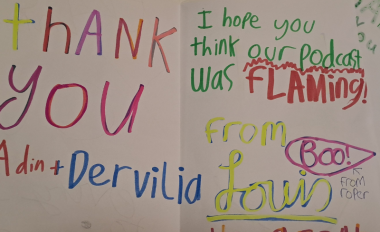 thANK
YOU
Adin + Dervilia
I hope you
think our podcast
was FLAMing!
From
BOO!
from
roper
Louis